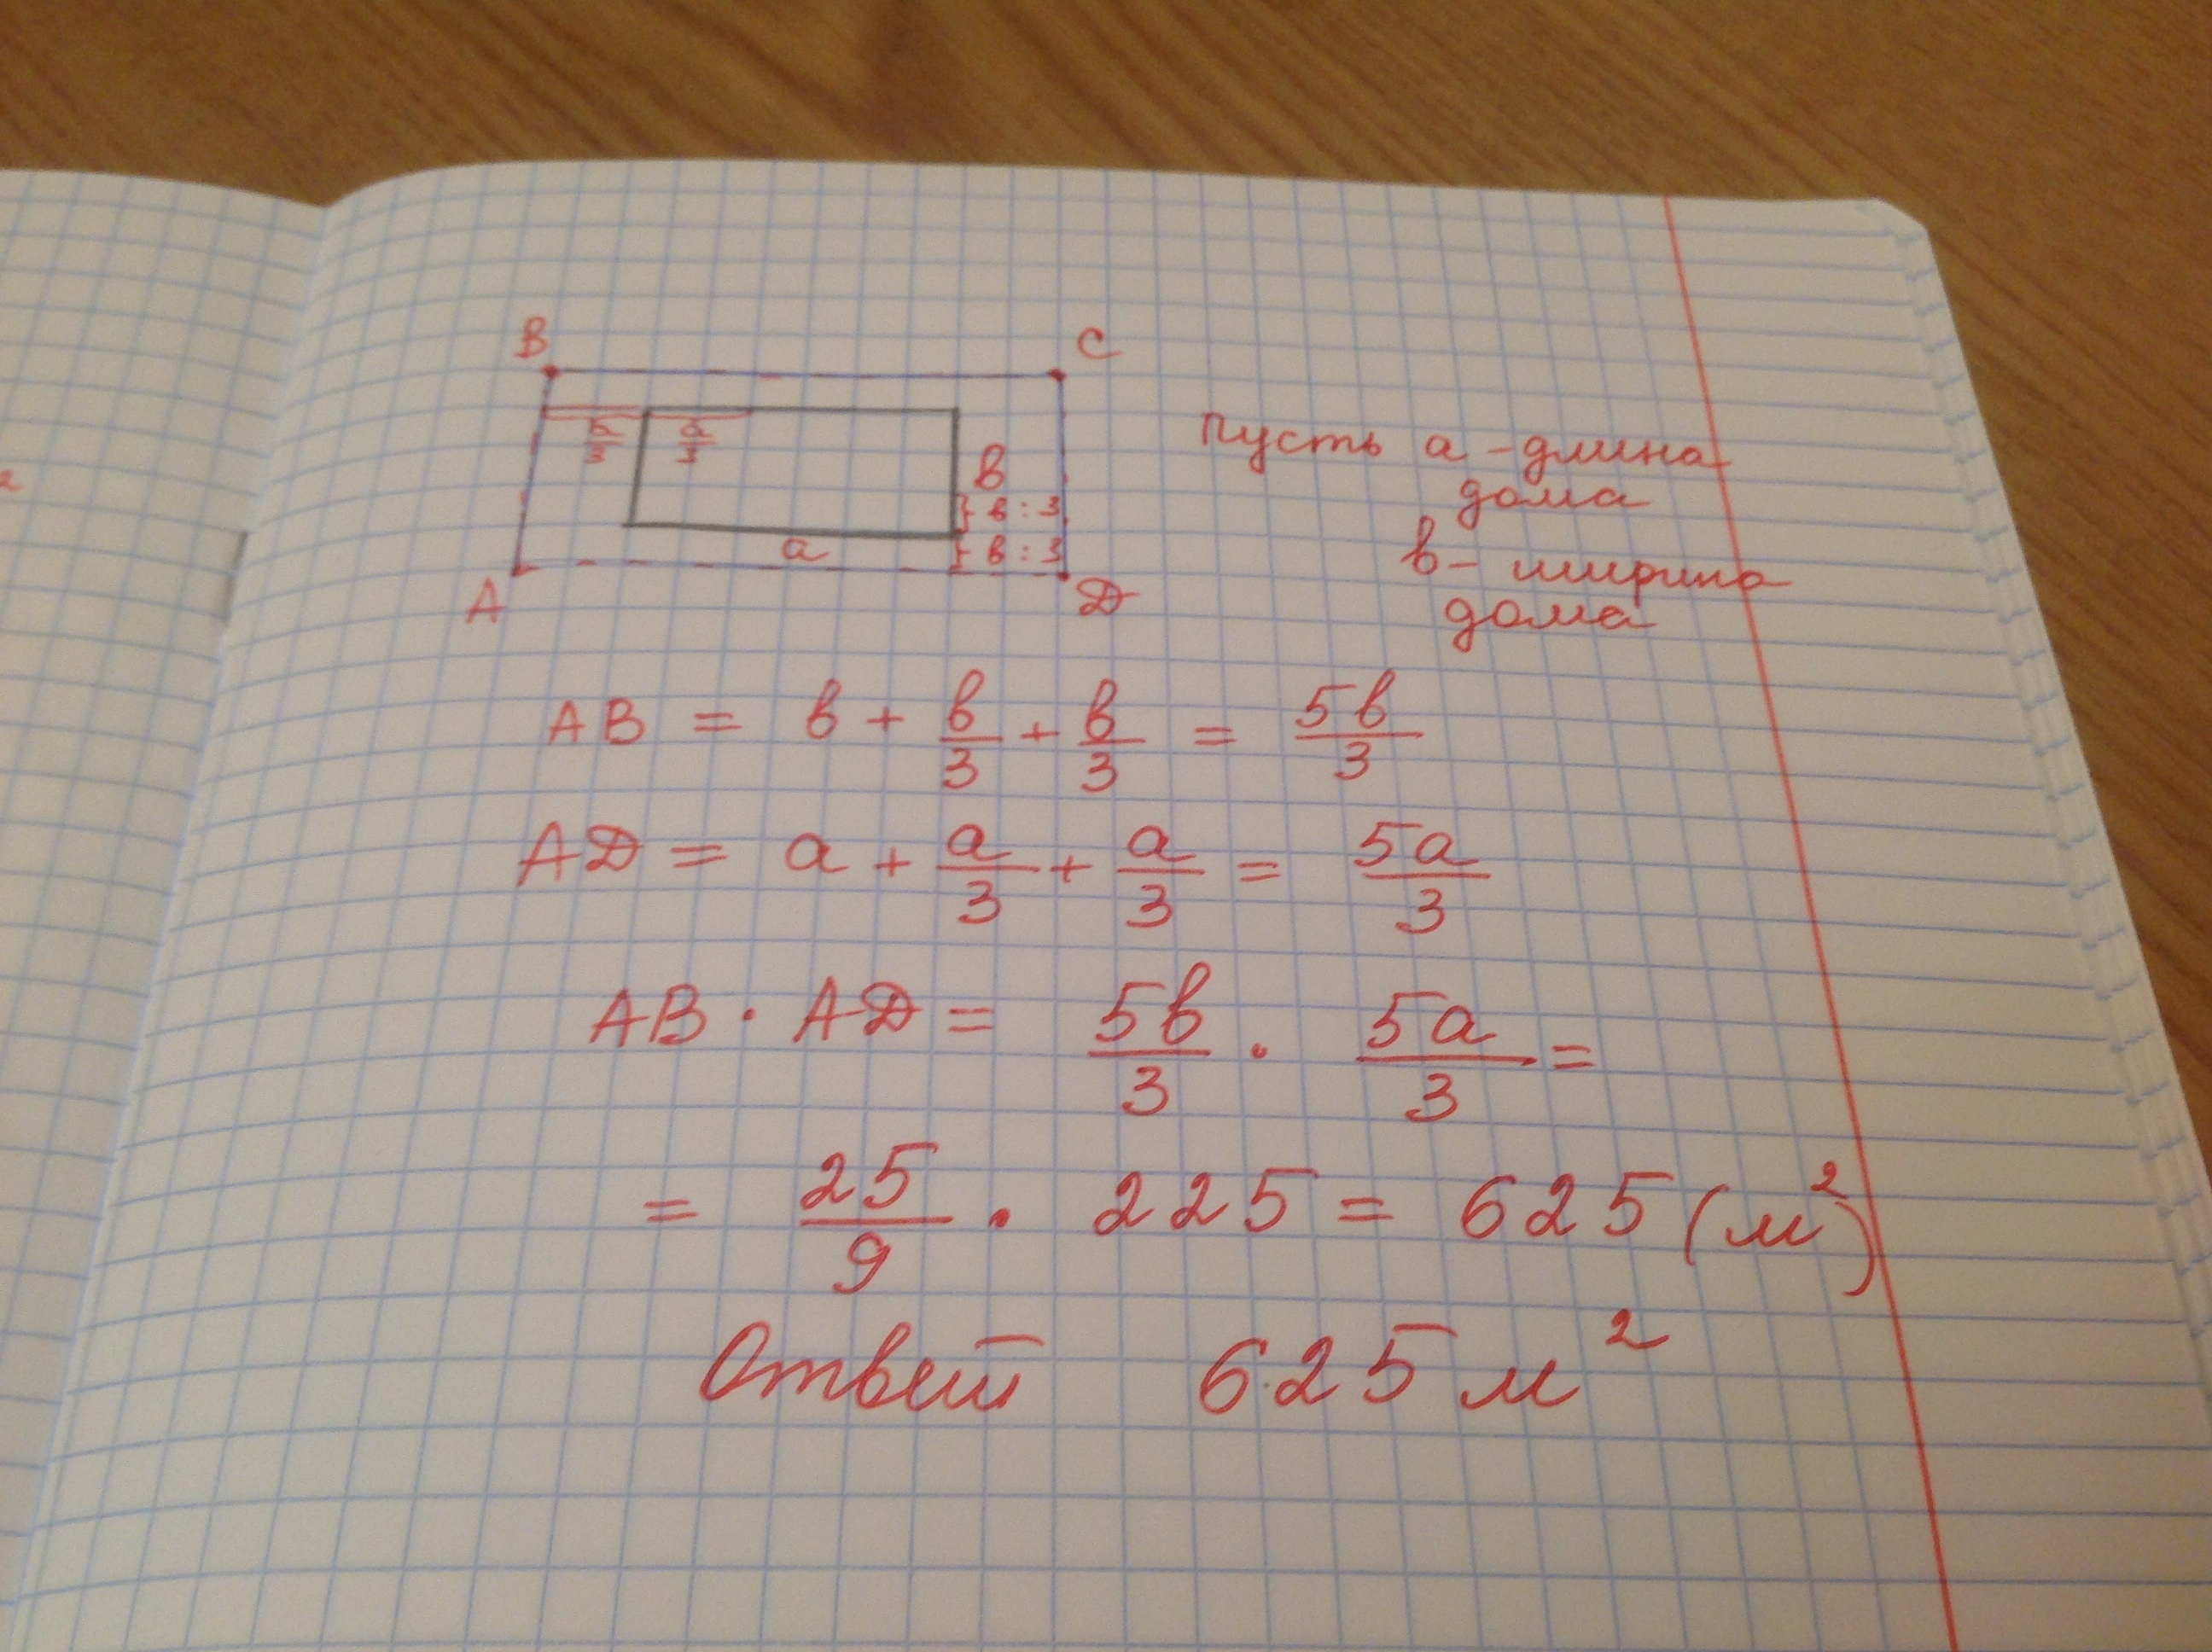 B C
a/3 a/3
B
в : 3
a в : 3
A D
Пусть a - длина
дома
в - ширина
дома
AB = в + в/3 + в/3 = 5в/3
AD = a + a/3 + a/3 = 5a/3
AB · AD = 5в/3 · 5a/3 =
= 25/9 · 225 = 625 (м²)
Ответ 625 м²